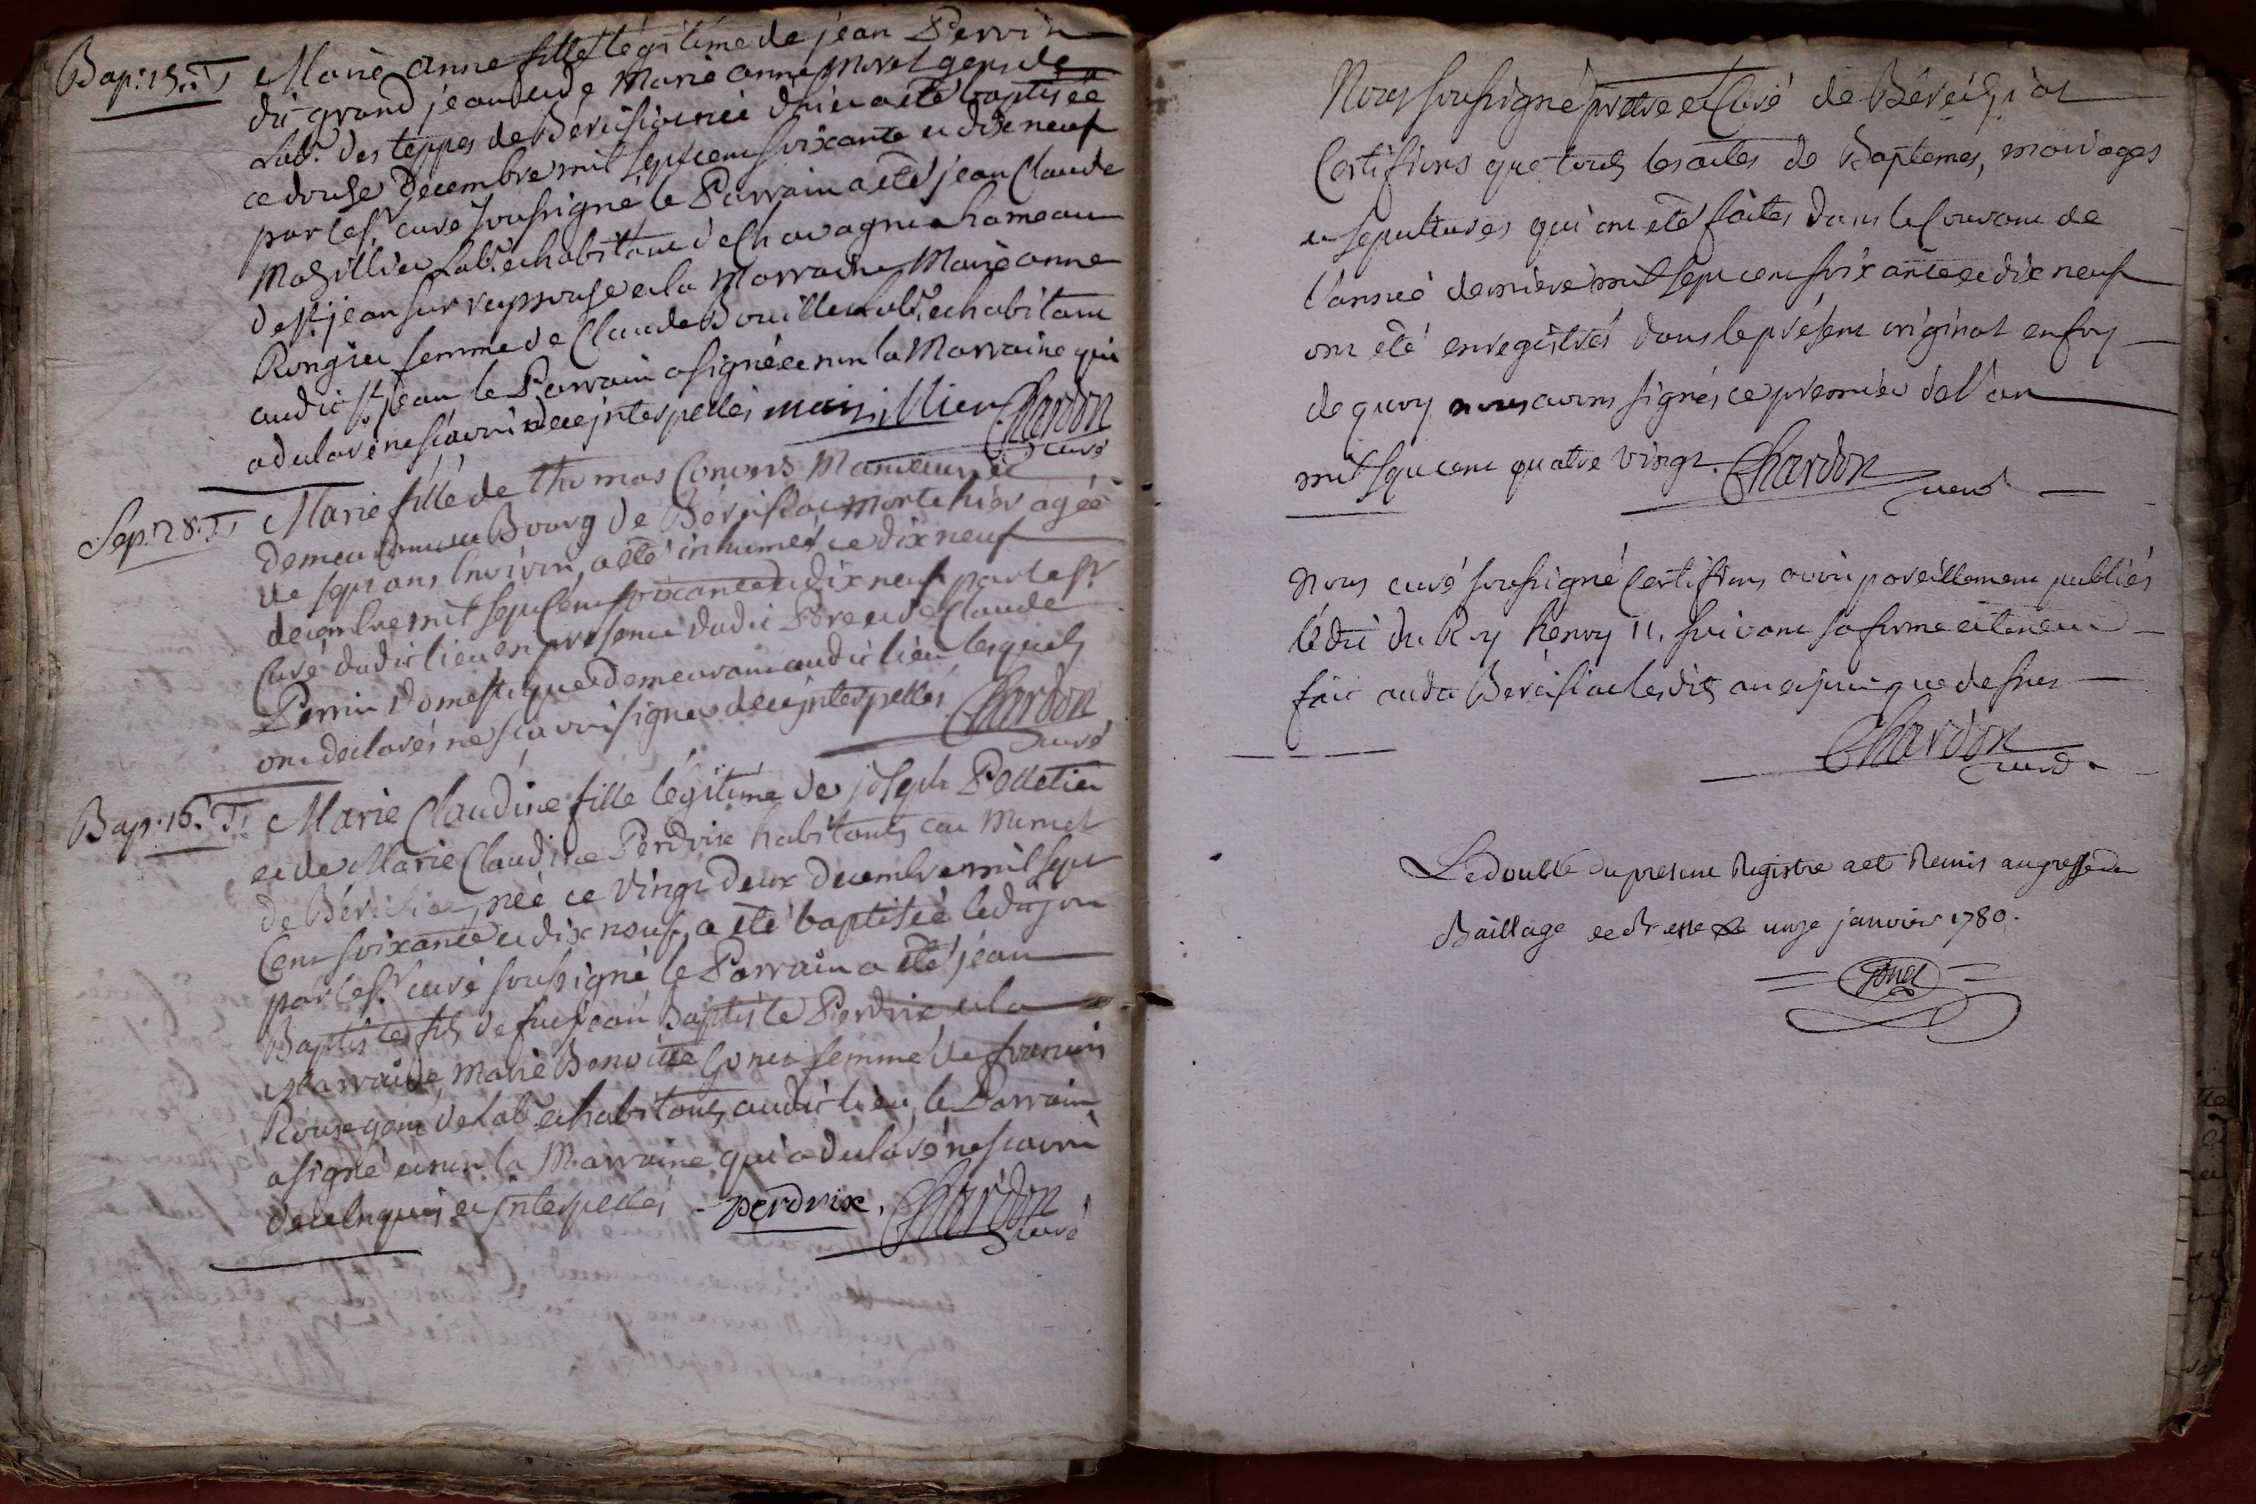 Bap. 15. T.
Marie anne fille légitime de jean Perrin
dit grand jean et de Marie anne Morel gens de
Lab.r des teppes de Béréisiat née d'hier a été baptisée
ce douse Decembre mil sept cent soixante et dix neuf
par le s.r curé soussigné, le Parrain a été jean Claude
Mazillier Lab.r et habitant de Chavagnia hameau
de s.t jean sur reyssouse et la Marraine Marie anne
femme de Claude Bouillet lab.r et habitant
audit s.t jean le Parrain a signé et non la Marraine qui
a declaré ne sçavoir de ce jnterpellés mazillier Chardon
curé
Sep. 28. T.
Marie fille de thomas Convers Manouvrier
demeurant au Bourg de Béréisiat morte hier agée
de sept ans Environ, a été inhumée ce dix neuf
decembre mil sept Cent soixante et dix neuf par le s.r
Curé dudit lieu en presence dudit Pere et de Claude
Perrin Domestique demeurant audit lieu lesquels
ont declarés ne sçavoir signer de ce jnterpellés Chardon
curé
Bap. 16. T.
Marie Claudine fille légitime de joseph Pelletier
et de Marie Claudine Perdrix habitants au
de Béréisiat, née ce vingt deux decembre mil sept
Cent soixante et dix neuf, a été baptisée ledit jour
par le s.r curé soussigné, le Parrain a été jean
Baptiste fils de fut jean Baptiste Perdrix et la
Marraine Marie Benoitte femme de francois
gens de Lab.r et habitants audit lieu, le Parrain
a signé et non la Marraine qui a declaré ne sçavoir
de ce enquis et jnterpellés. perdrix. Chardon
curé
Nous soussigné prêtre et Curé de Béréisiat
Certifions que touts les actes de Baptemes, mariages
et sepultures qui ont été faites dans le Courant de
l'année derniere mil sept cent soixante et dix neuf
ont été enregistrés dans le présent original en foy
de quoy nous avons signés ce premier de l'an
mil sept cent quatre vingt. Chardon
curé
Nous curé soussigné Certifions avoir pareillement publiés
l'édit du Roy henry II. suivant sa forme et teneur
fait audit Béréisiat lesdits an et jour que dessus
Chardon
curé.
Le double du present Registre a eté Remis au greffe du
Baillage de Bresse le unze janvier 1780.